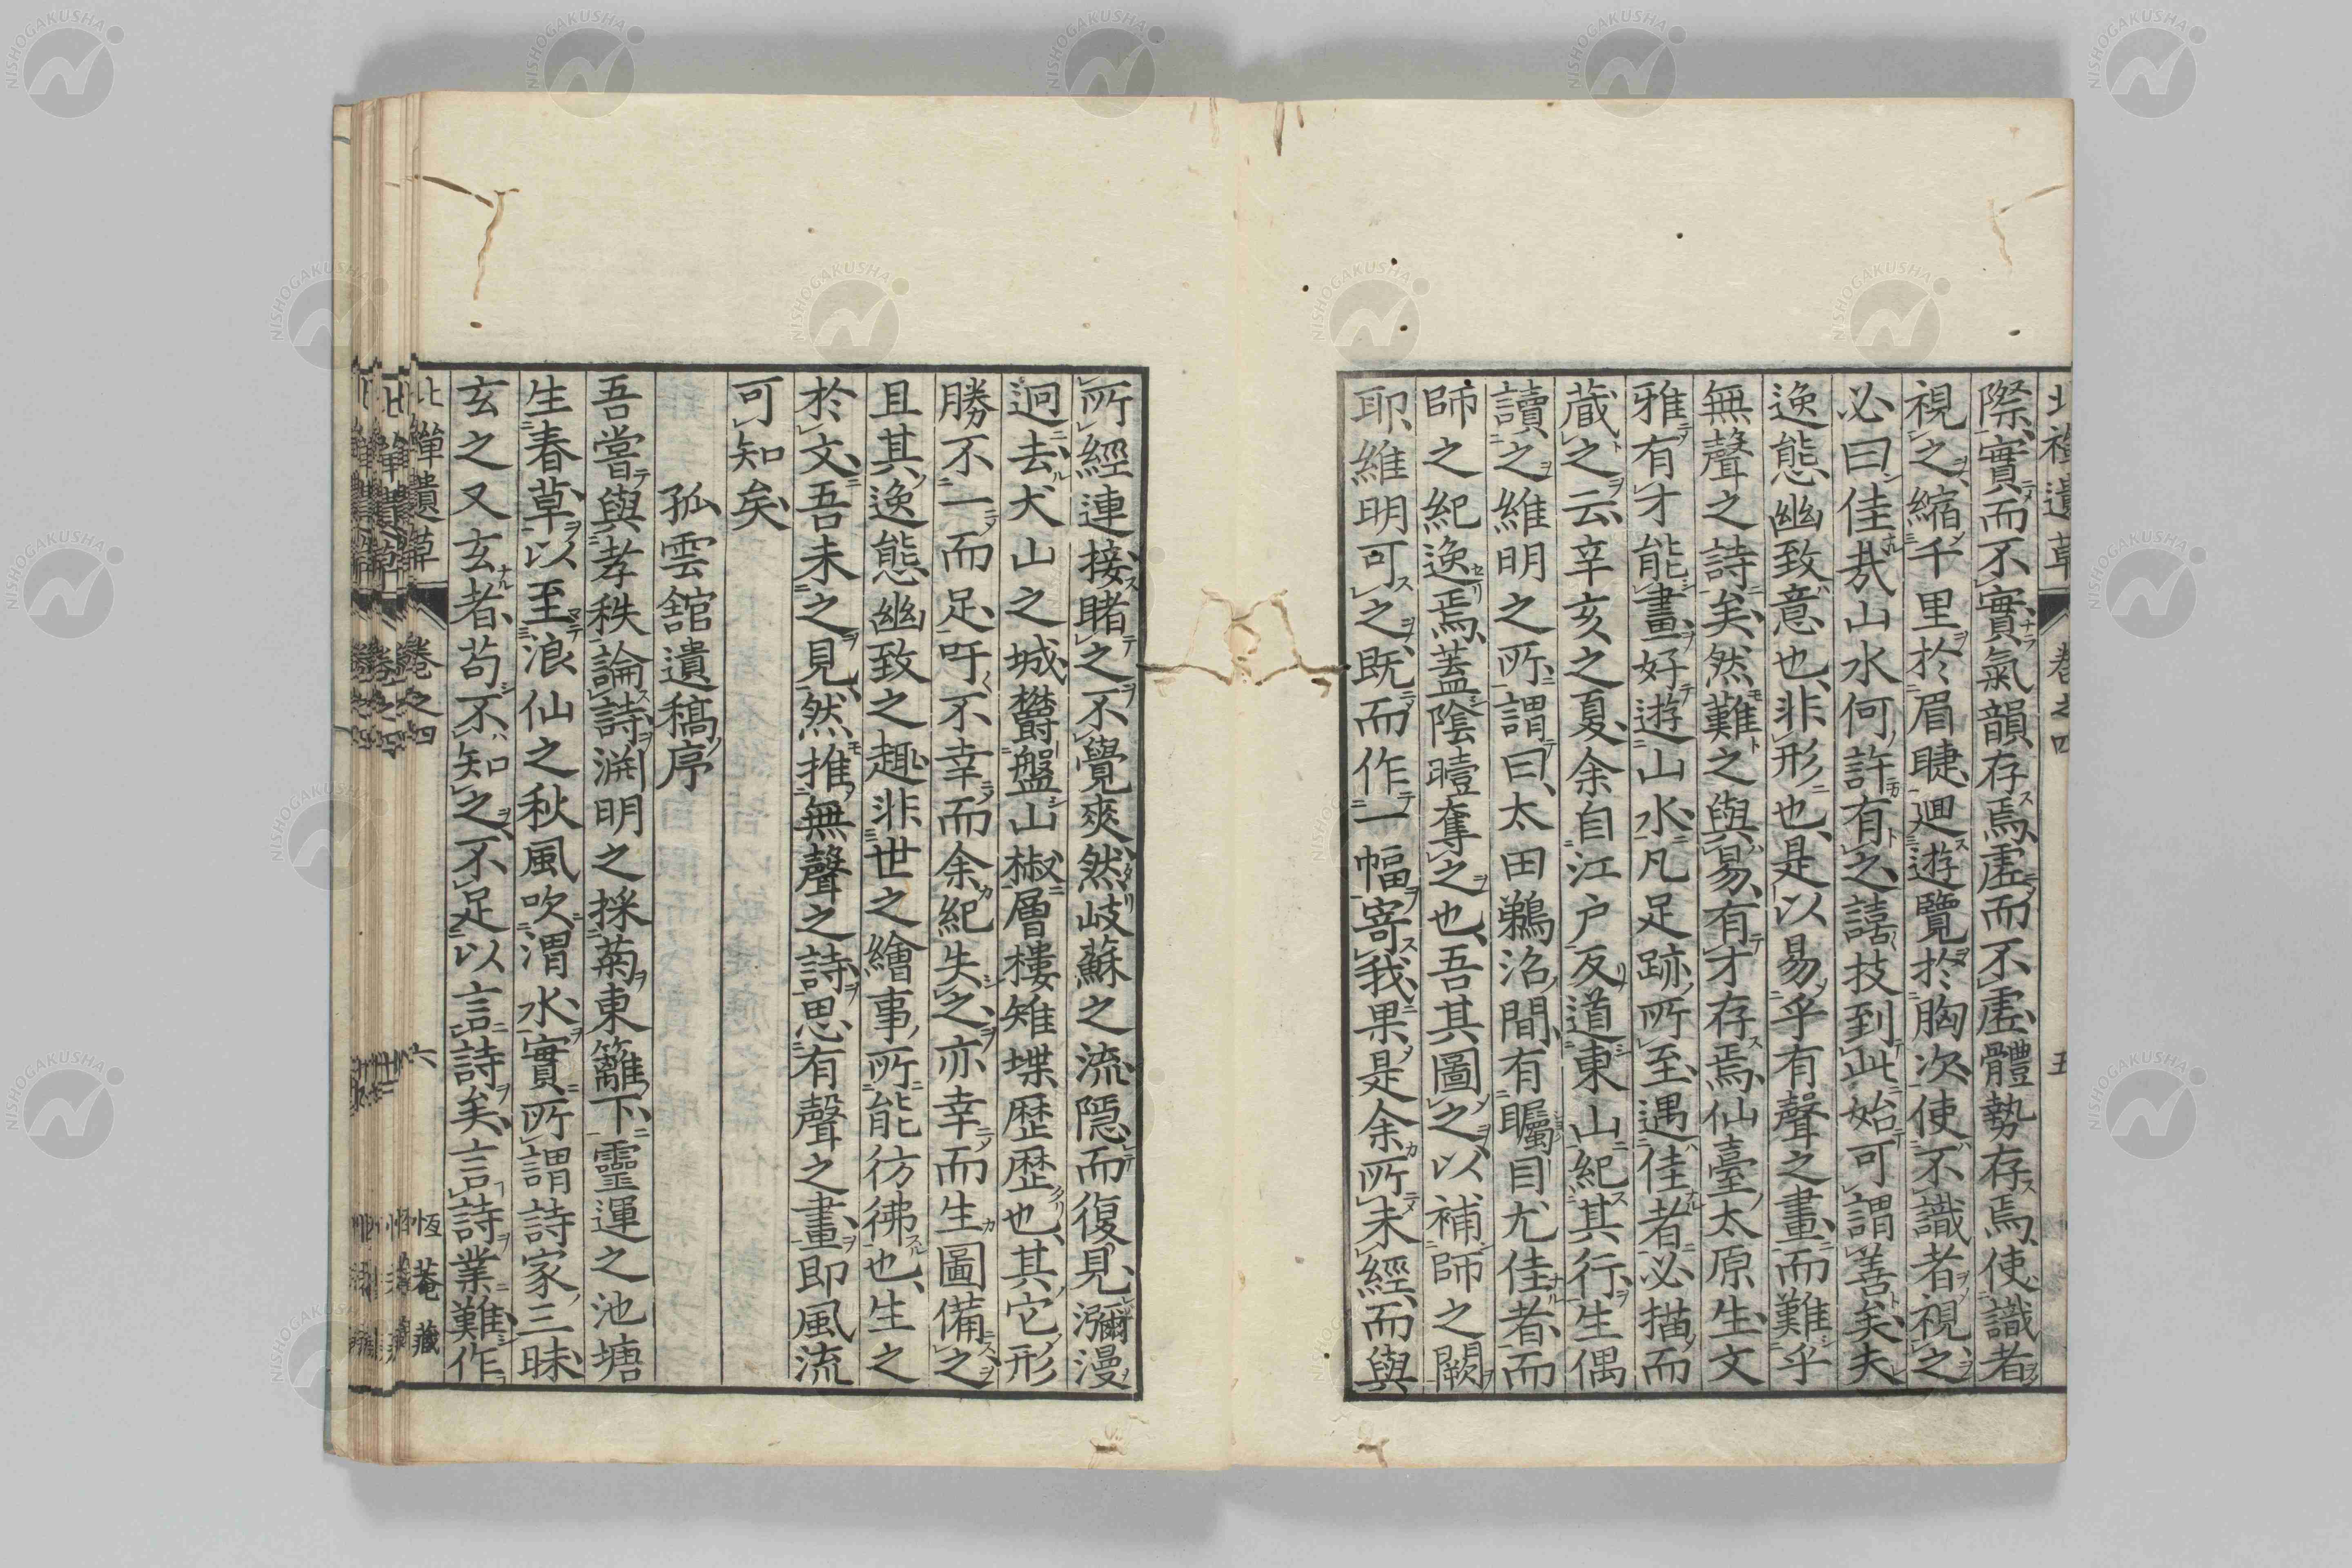 北禪遺草 卷之四 五
際實而不實氣韻存焉虛而不虛體勢存焉使識者
視之縮千里於眉睫廻遊覽於胸次使不識者視之
必曰佳哉山水何許有之譆技到此始可謂善矣夫
逸態幽致意也非形也是以易乎有聲之畫而難乎
無聲之詩矣然難之與易有才存焉仙臺太原生文
雅有才能畫好遊山水凡足跡所至遇佳者必描而
藏之云辛亥之夏余自江戶反道東山紀其行生偶
讀之維明之所謂曰太田鵜沼間有矚目尤佳者而
師之紀逸焉蓋陰曀奪之也吾其圖之以補師之闕
耶維明可之既而作一幅寄我果是余所未經而與
所經連接睹之不覺爽然岐蘇之流隱而復見瀰漫
迥去犬山之城欝盤山椒層樓雉堞歴歴也其它形
勝不一而足吁不幸而余紀失之亦幸而生圖備之
且其逸態幽致之趣非世之繪事所能彷彿也生之
於文吾未之見然推無聲之詩思有聲之畫即風流
可知矣
孤雲舘遺稿序
吾嘗與孝秩論詩淵明之採菊東籬下靈運之池塘
生春草以至浪仙之秋風吹渭水實所謂詩家三昧
玄之又玄者苟不知之不足以言詩矣言詩業難作
北禪遺草 卷之四 六 恆菴藏